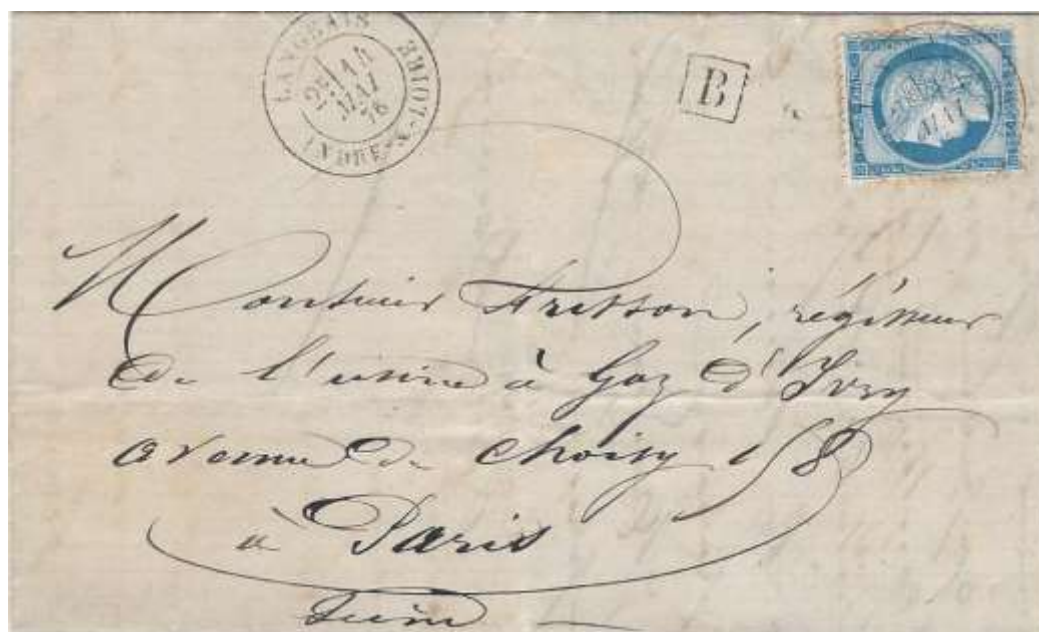 LANGEAIS
2E 14
MAI
76
INDRE-&-LOIRE
B
MAI
Monsieur Fresson, régisseur
de l'usine à Gaz d'Ivry
avenue de Choisy
à Paris
Seine